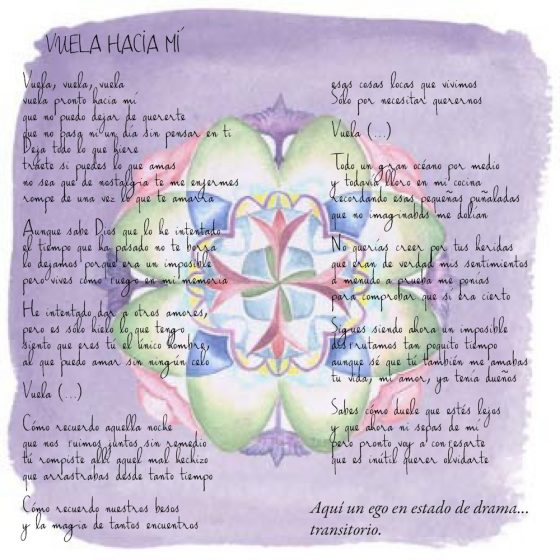 VUELA HACIA MÍ
Vuela, vuela, vuela
vuela pronto hacia mí
que no puedo dejar de quererte
que no pasa ni un día sin pensar en ti
Deja todo lo que hiere
tráete si puedes lo que amas
no sea que de nostalgia te me enfermes
rompe de una vez lo que te amarra
Aunque sabe Dios que lo he intentado
el tiempo que ha pasado no te borra
lo dejamos porque era un imposible
pero vives como fuego en mi memoria
He intentado dar a otros amores,
pero es sólo hielo lo que tengo
siento que eres tú el único hombre,
al que puedo amar sin ningún celo
Vuela (...)
Cómo recuerdo aquella noche
que nos ruimos juntos sin remedio
tú rompiste allí aquel mal hechizo
que arrastrabas desde tanto tiempo
Cómo recuerdo nuestros besos
y la magia de tantos encuentros
esas cosas locas que vivimos
Sólo por necesitar querernos
Vuela (...)
Todo un gran océano por medio
y todavía lloro en mi cocina
recordando esas pequeñas puñaladas
que no imaginabas me dolían
No querías creer por tus heridas
que eran de verdad mis sentimientos
a menudo a prueba me ponías
para comprobar que sí era cierto
Sigues siendo ahora un imposible
disfrutamos tan poquito tiempo
aunque sé que tú también me amabas
tu vida, mi amor, ya tenía dueños
Sabes cómo duele que estés lejos
y que ahora ni sepas de mí
pero pronto voy a confesarte
que es inútil querer olvidarte
Aquí un ego en estado de drama...
transitorio.